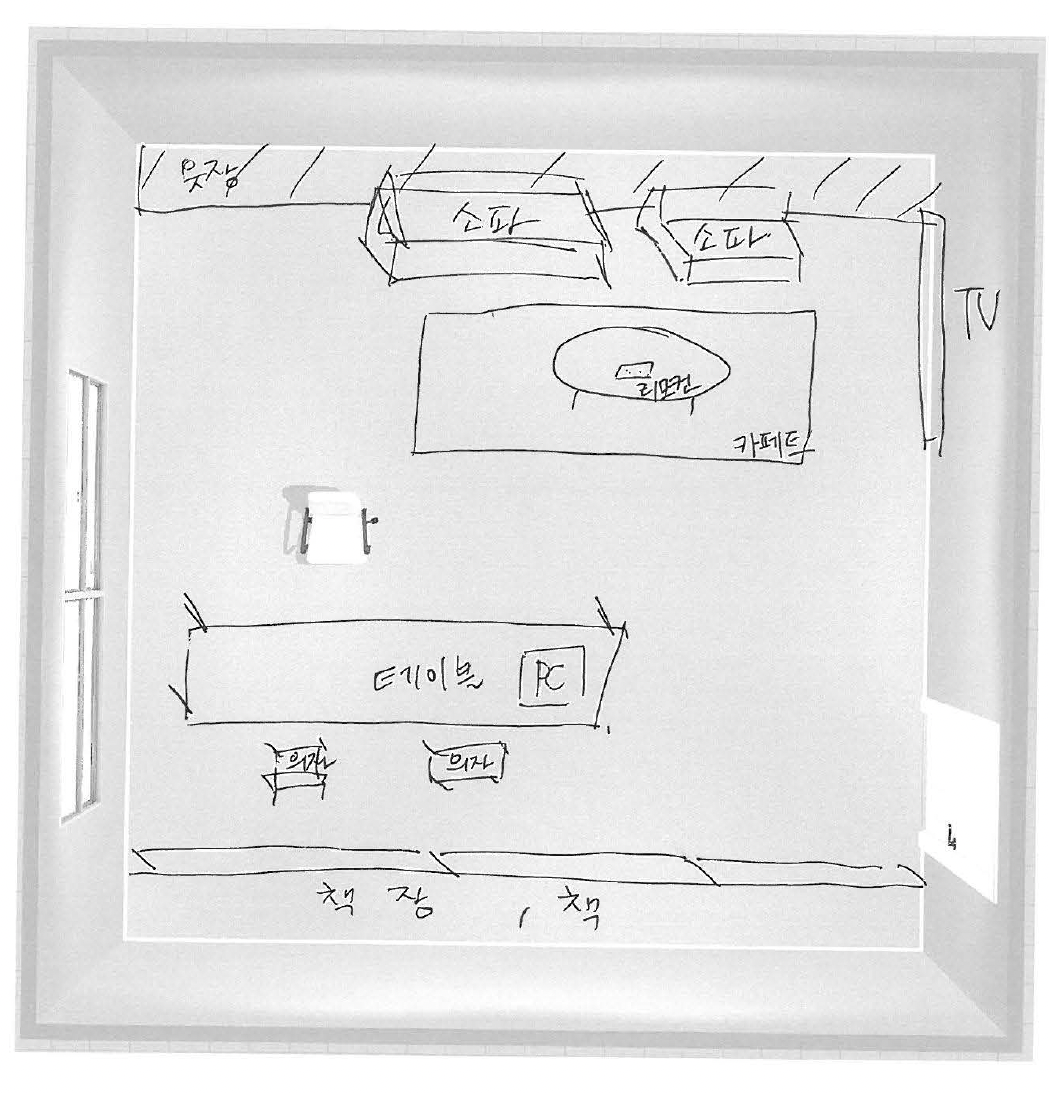 옷장
소파
소파
TV
리모컨
카페트
테이블
PC
의자
의자
책장, 책